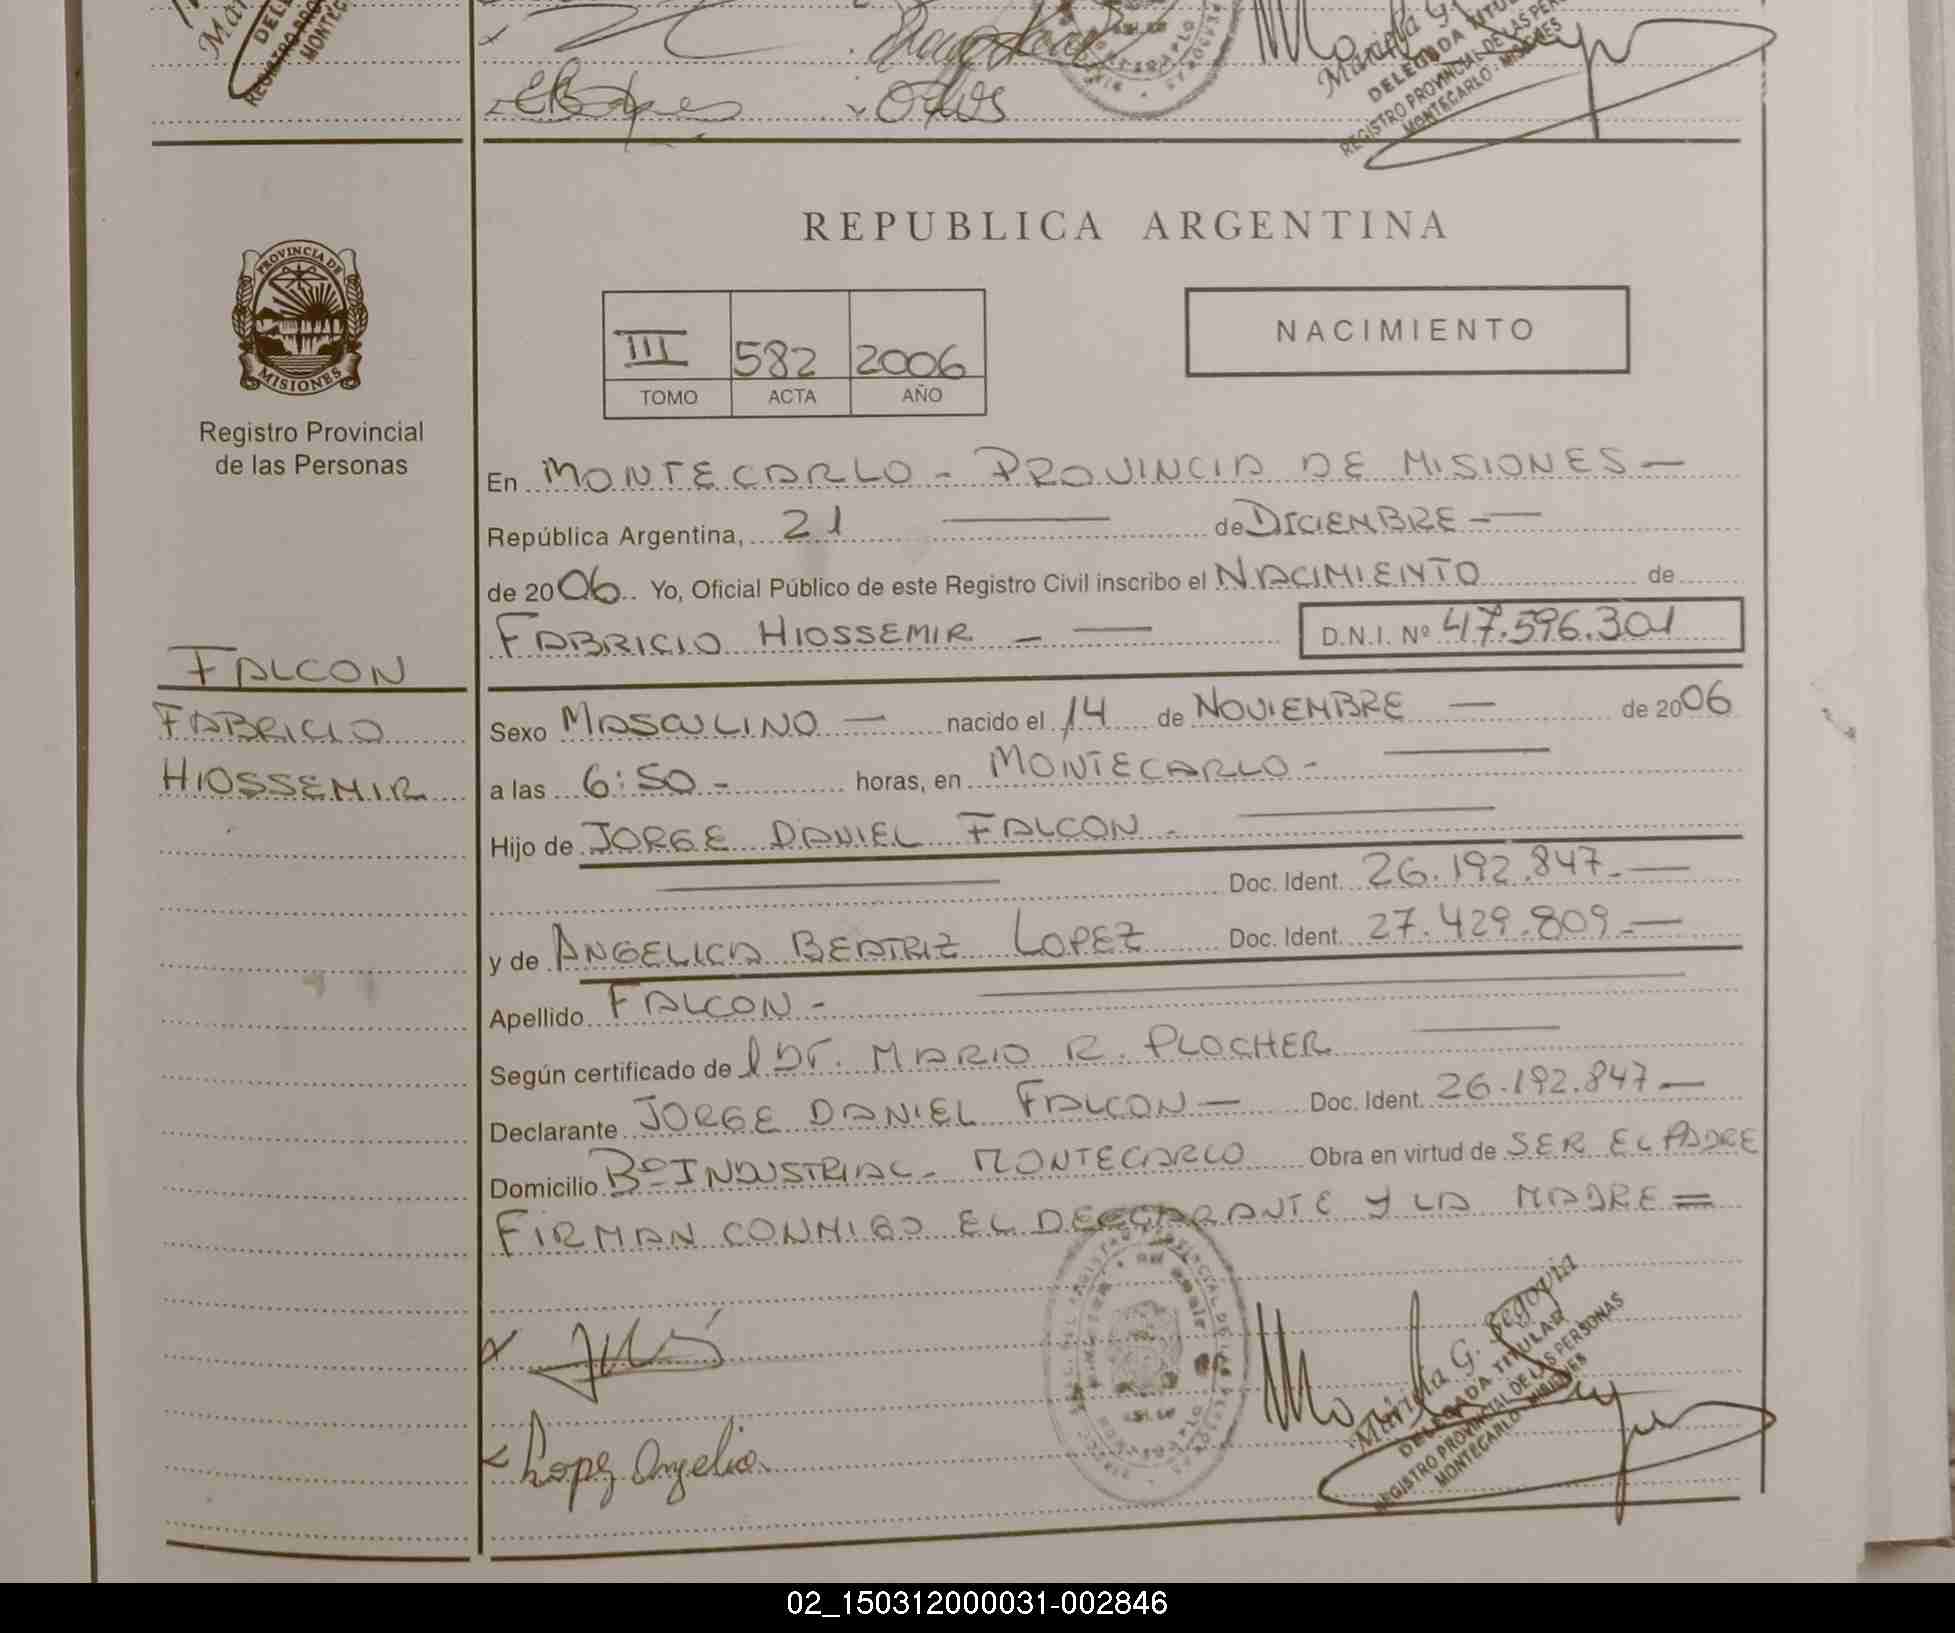 REPUBLICA ARGENTINA
PROVINCIA DE
MISIONES
Registro Provincial
de las Personas
III 582 2006
TOMO ACTA AÑO
NACIMIENTO
En MONTECARLO - PROVINCIA DE MISIONES —
República Argentina, 21 — de DICIENBRE —
de 2006 Yo, Oficial Público de este Registro Civil inscribo el NACIMIENTO de
FABRICIO HIOSSEMIR — — D.N.I. Nº 47.596.301
FALCON
FABRICIO
HIOSSEMIR
Sexo MASCULINO — nacido el 14 de NOVIEMBRE — de 2006
a las 6:50 - horas, en MONTECARLO -
Hijo de JORGE DANIEL FALCON -
Doc. Ident. 26.192.847.—
y de ANGELICA BEATRIZ LOPEZ Doc. Ident. 27.429.809.—
Apellido FALCON -
Según certificado de l DR. MARIO R. PLOCHER
Declarante JORGE DANIEL FALCON — Doc. Ident. 26.192.847 —
Domicilio Bº INDUSTRIAL - MONTECARLO Obra en virtud de SER EL PADRE
FIRMAN CONMIGO EL DECLARANTE Y LA MADRE =
Lopez Angelica
Mariela G. Segovia
DELEGADA TITULAR
REGISTRO PROVINCIAL DE LAS PERSONAS
MONTECARLO - MISIONES
02_150312000031-002846